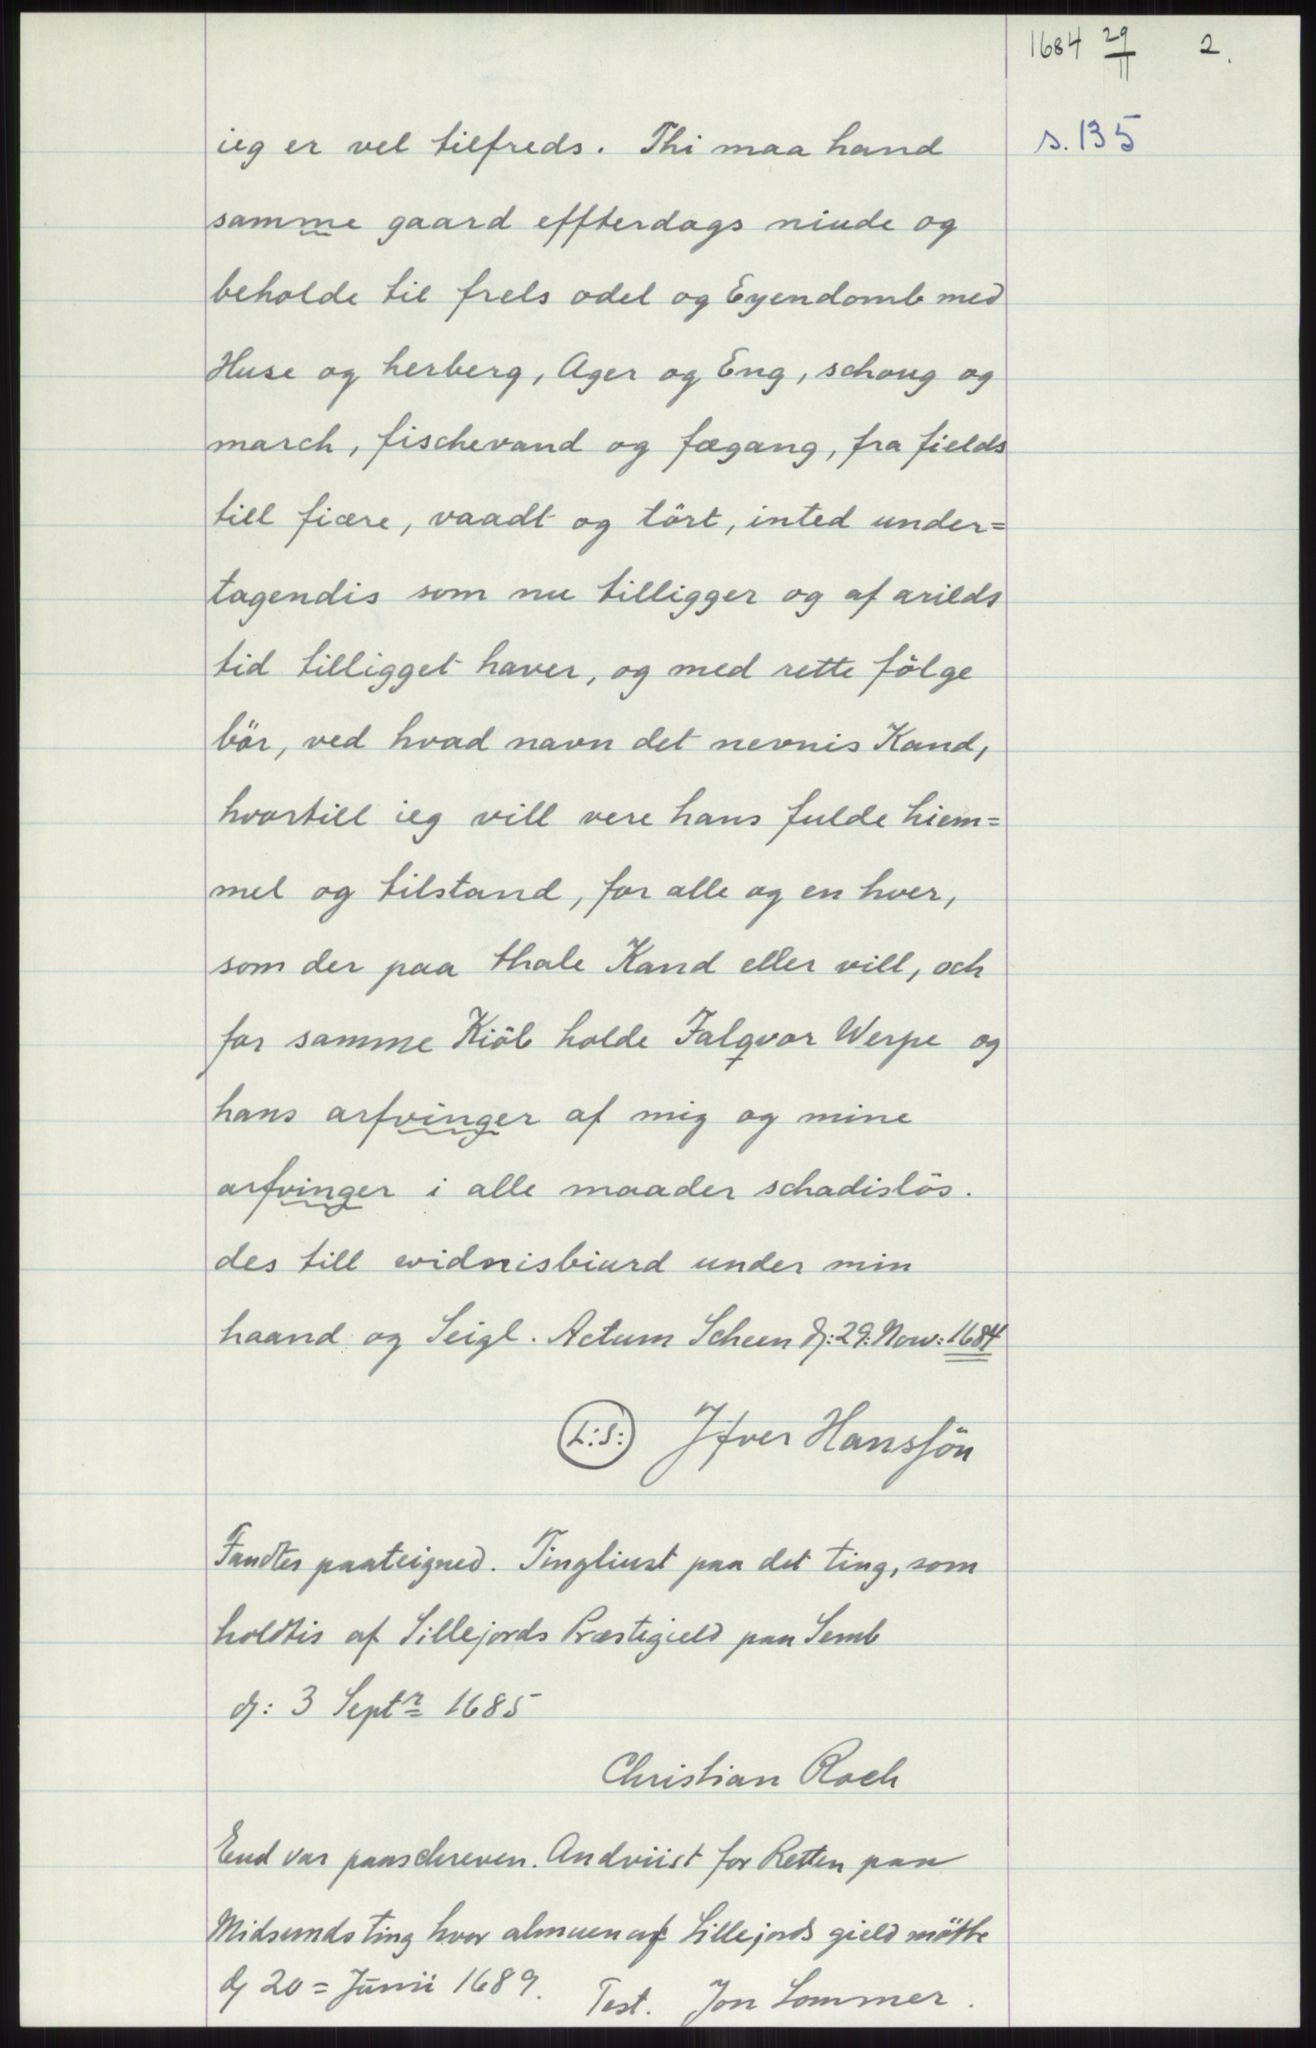 1684 29/11 2.
s. 135
ieg er vel tilfreds. Thi maa hand
samme gaard effterdags niude og
beholde til frels odel og Eyendomb med
Huse og herberg, Ager og Eng, schoug og
march, fischevand og fægang, fra fields
till fiære, vaadt og tört, inted under=
tagendis som nu tilligger og af arilds
tid tilligget haver, og med rette fölge
bör, ved hvad navn det nevnis Kand,
hvortill ieg vill vere hans fulde hiem=
mel og tilstand, for alle og en hver,
som der paa thale Kand eller vill, och
for samme Kiöb holde Falqvor Werpe og
hans arfvinger af mig og mine
arfvinger i alle maader schadislös.
des till widnisbiurd under min
haand og Seigl. Actum Scheen d: 29: Now: 1684
L:S: Ifver Hanssön
Fandtes paateigned. Tingliust paa det ting, som
holdtis af Sillejords Præstigield paa Semb
d: 3 Septr 1685
Christian Roch
End var paaschreven. Andviist for Retten paa
Midsunds ting hvor almuen af Sillejords gield mötte
d 20 = Junii 1689. Test. Jon Sommer.